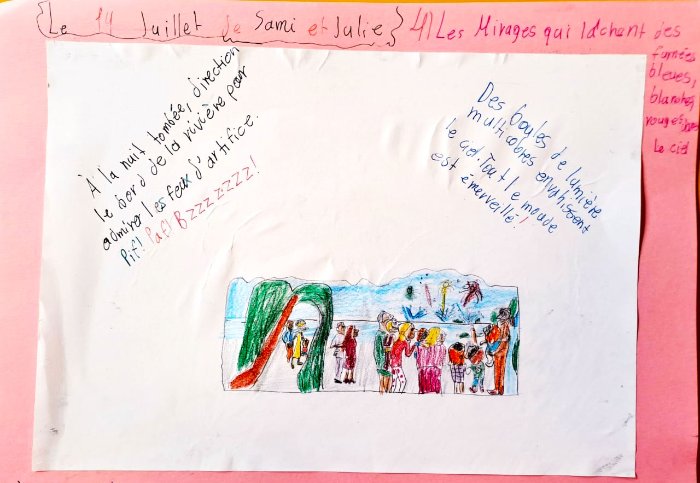 {Le 14 Juillet de Sami et Julie}
4) Les Mirages qui lâchent des
fumées
bleues,
blanches,
rouges dans
le ciel
À la nuit tombée, direction
le bord de la rivière pour
admirer les feux d'artifice.
Pif! Paf! Bzzzzzzz!
Des boules de lumière
multicolores envahissent
le ciel. Tout le monde
est émerveillé!